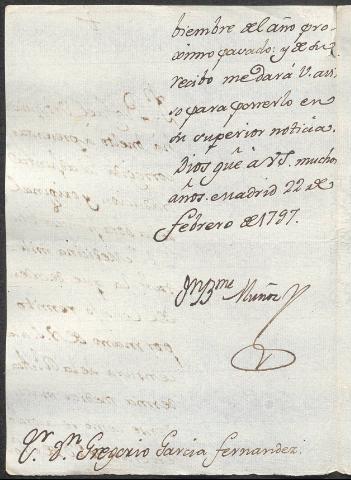 biembre del año pro-
ximo pasado: y de su
recibo me dará V. avi-
so para ponerlo en
su superior noticia.
Dios gue. à VS. muchos
años. Madrid 22 de
febrero de 1797.
Muñoz
Sr. Dn. Gregorio Garcia fernandez.